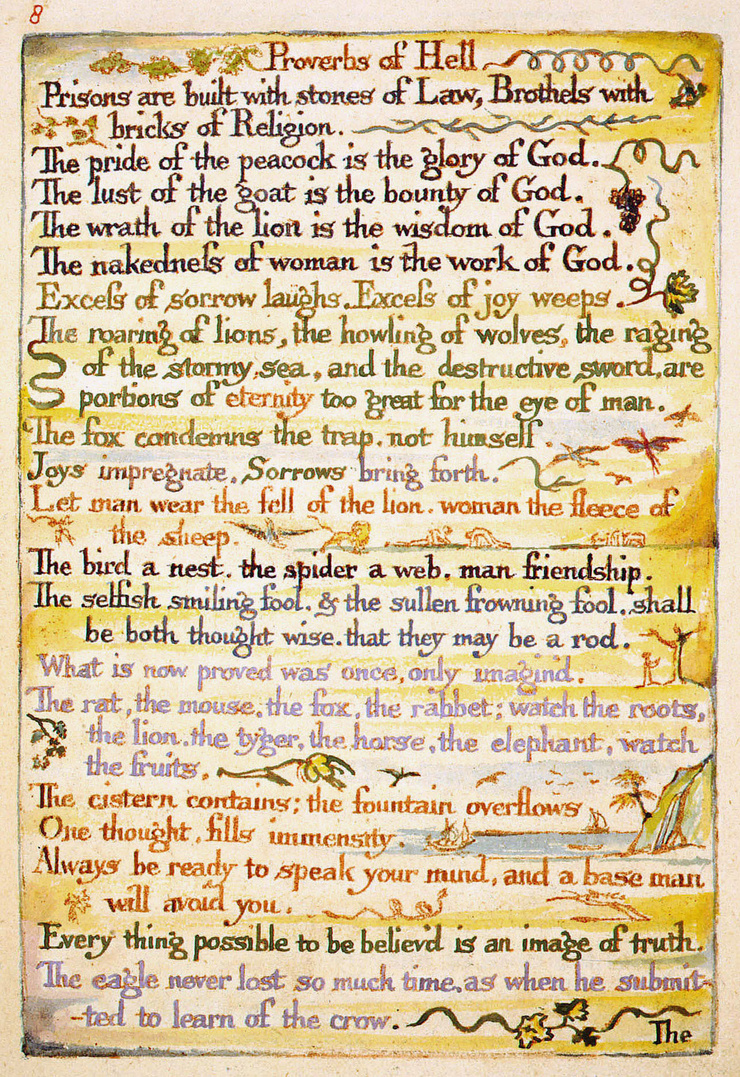 8
Proverbs of Hell
Prisons are built with stones of Law, Brothels with
bricks of Religion.
The pride of the peacock is the glory of God.
The lust of the goat is the bounty of God.
The wrath of the lion is the wisdom of God.
The nakedneſs of woman is the work of God.
Exceſs of sorrow laughs. Exceſs of joy weeps.
The roaring of lions, the howling of wolves, the raging
of the stormy sea, and the destructive sword, are
portions of eternity too great for the eye of man.
The fox condemns the trap, not himself.
Joys impregnate. Sorrows bring forth.
Let man wear the fell of the lion. woman the fleece of
the sheep.
The bird a nest. the spider a web. man friendship.
The selfish smiling fool. & the sullen frowning fool. shall
be both thought wise. that they may be a rod.
What is now proved was once, only imagin'd.
The rat, the mouse, the fox, the rabbet; watch the roots,
the lion, the tyger, the horse, the elephant, watch
the fruits.
The cistern contains; the fountain overflows
One thought, fills immensity.
Always be ready to speak your mind, and a base man
will avoid you.
Every thing possible to be believ'd is an image of truth.
The eagle never lost so much time, as when he submit-
-ted to learn of the crow.
The